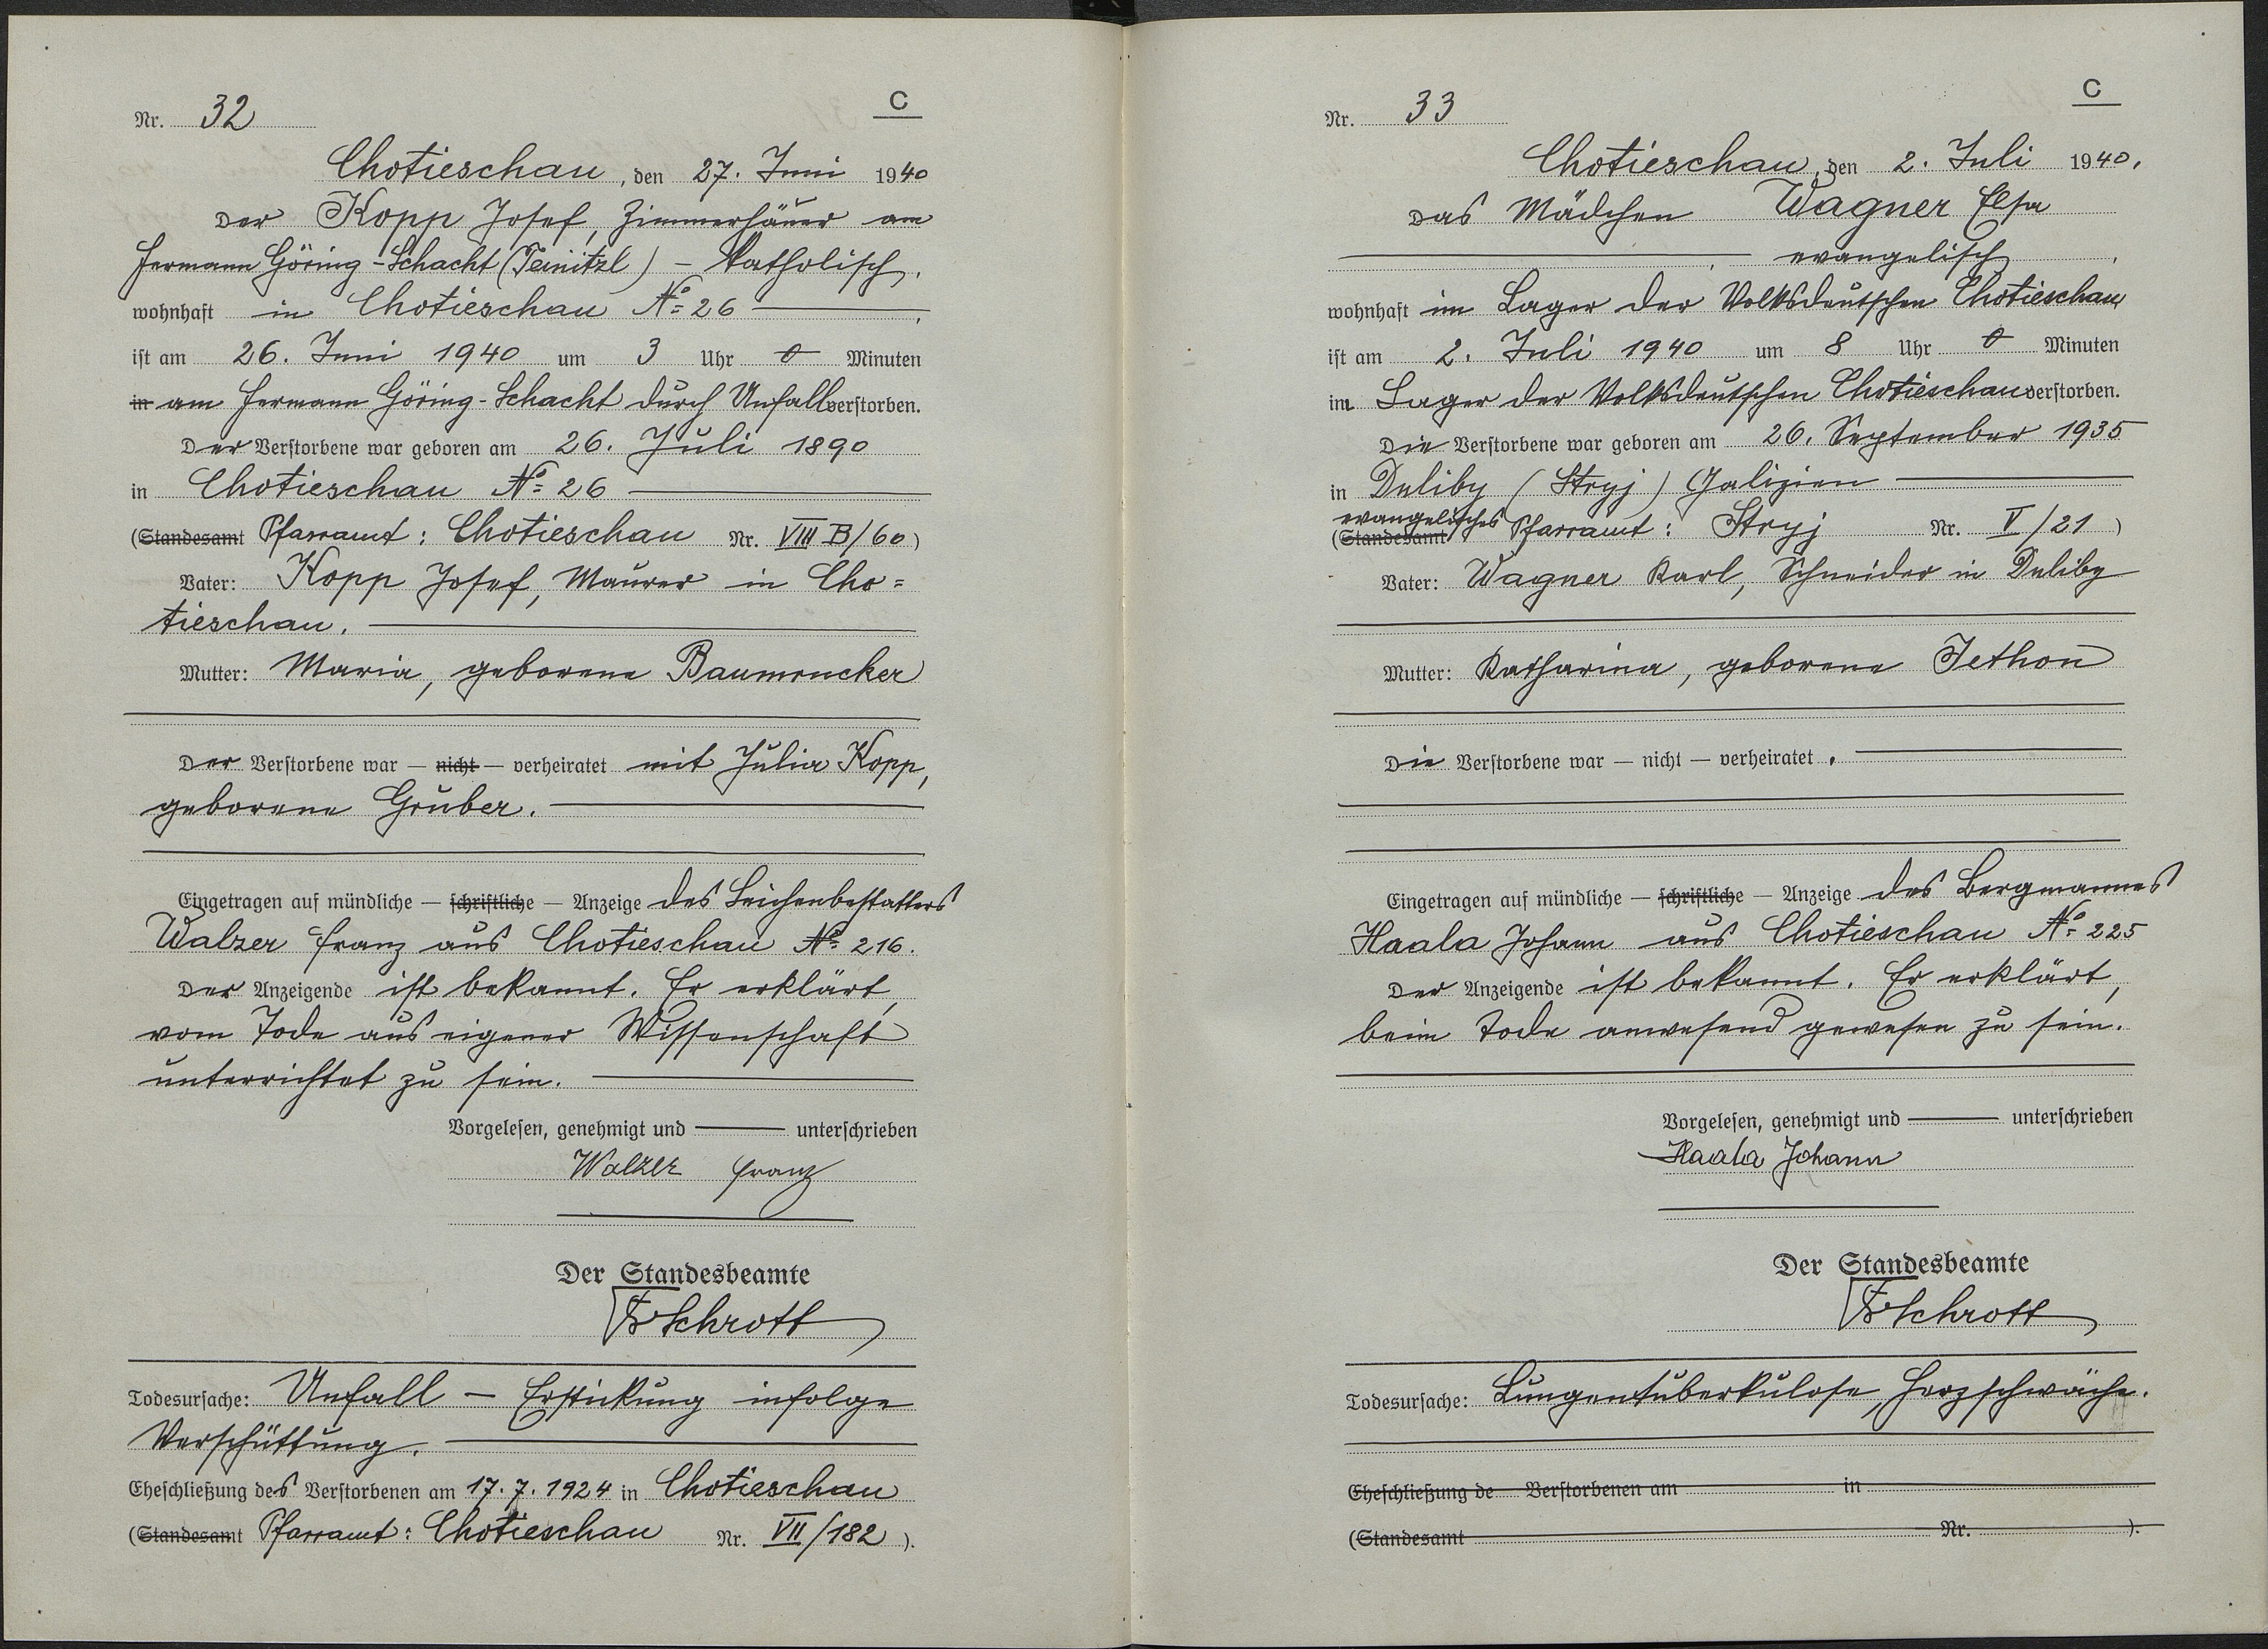 Nr. 32
C
Chotieschau, den 27. Juni 1940
Der Kopp Josef, Zimmerhäuer am
Hermann Göring-Schacht (Teinitzl) - katholisch,
wohnhaft in Chotieschau No 26
ist am 26. Juni 1940 um 3 Uhr 0 Minuten
in am Hermann Göring-Schacht durch Unfall verstorben.
Der Verstorbene war geboren am 26. Juli 1890
in Chotieschau No 26
(Standesamt Pfarramt: Chotieschau Nr. VIII B/60)
Vater: Kopp Josef, Maurer in Cho=
tieschau.
Mutter: Maria, geborene Baumruncker
Der Verstorbene war — nicht — verheiratet mit Julia Kopp,
geborene Gruber.
Eingetragen auf mündliche — schriftliche — Anzeige des Leichenbestatters
Walzer Franz aus Chotieschau No 216.
Der Anzeigende ist bekannt. Er erklärt,
vom Tode aus eigener Wissenschaft
unterrichtet zu sein.
Vorgelesen, genehmigt und unterschrieben
Walzer Franz
Der Standesbeamte
Schrott
Todesursache: Unfall - Erstickung infolge
Verschüttung.
Eheschließung des Verstorbenen am 17.7.1924 in Chotieschau
(Standesamt Pfarramt: Chotieschau Nr. VII/182).
Nr. 33
C
Chotieschau, den 2. Juli 1940.
Das Mädchen Wagner Elsa
evangelisch,
wohnhaft im Lager der Volksdeutschen Chotieschau
ist am 2. Juli 1940 um 8 Uhr 0 Minuten
im Lager der Volksdeutschen Chotieschau verstorben.
Die Verstorbene war geboren am 26. September 1935
in Duliby (Stryj) Galizien
(Standesamt evangelisches Pfarramt: Stryj Nr. V/21)
Vater: Wagner Karl, Schneider in Duliby
Mutter: Katharina, geborene Jethon
Die Verstorbene war — nicht — verheiratet.
Eingetragen auf mündliche — schriftliche — Anzeige des Bergmannes
Haala Johann aus Chotieschau No 225
Der Anzeigende ist bekannt. Er erklärt,
beim Tode anwesend gewesen zu sein.
Vorgelesen, genehmigt und unterschrieben
Haala Johann
Der Standesbeamte
Schrott
Todesursache: Lungentuberkulose, Herzschwäche.
Eheschließung de Verstorbenen am in
(Standesamt Nr. ).